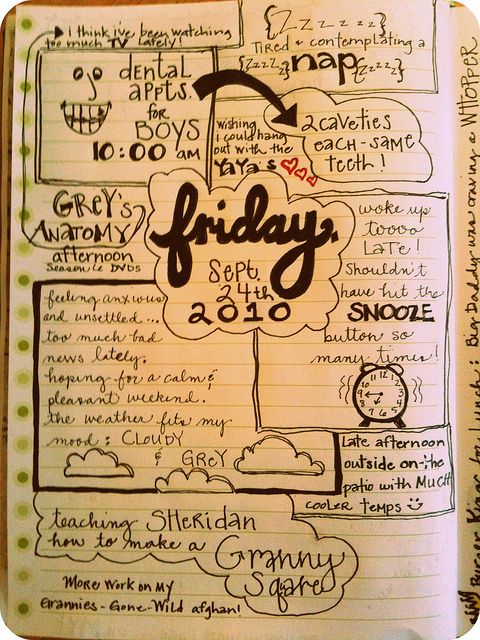 i think ive been watching
too much TV lately!
dental
appts.
for
BOYS
10:00 am
{Zzzzzzz}
Tired & contemplating a
{zzzz} nap {zzzz}
2 caveties
each - same
teeth!
wishing
i could hang
out with the
YaYa's
GREY'S
ANATOMY
afternoon
Season 6 DVDs
friday.
Sept.
24th
2010
woke up
toooo
LaTe!
Shouldn't
have hit the
SNOOZE
button so
many times!
feeling anxious
and unsettled...
too much bad
news lately.
hoping for a calm &
pleasant weekend.
the weather fits my
mood: CLOUDY
& GREY
Late afternoon
outside on the
patio with MUCH
cooler temps
teaching SHeridan
how to make a
Granny
Square
More work on my
Grannies-Gone-Wild afghan!
Burger King for lunch: Big Daddy was craving a WHOPPER